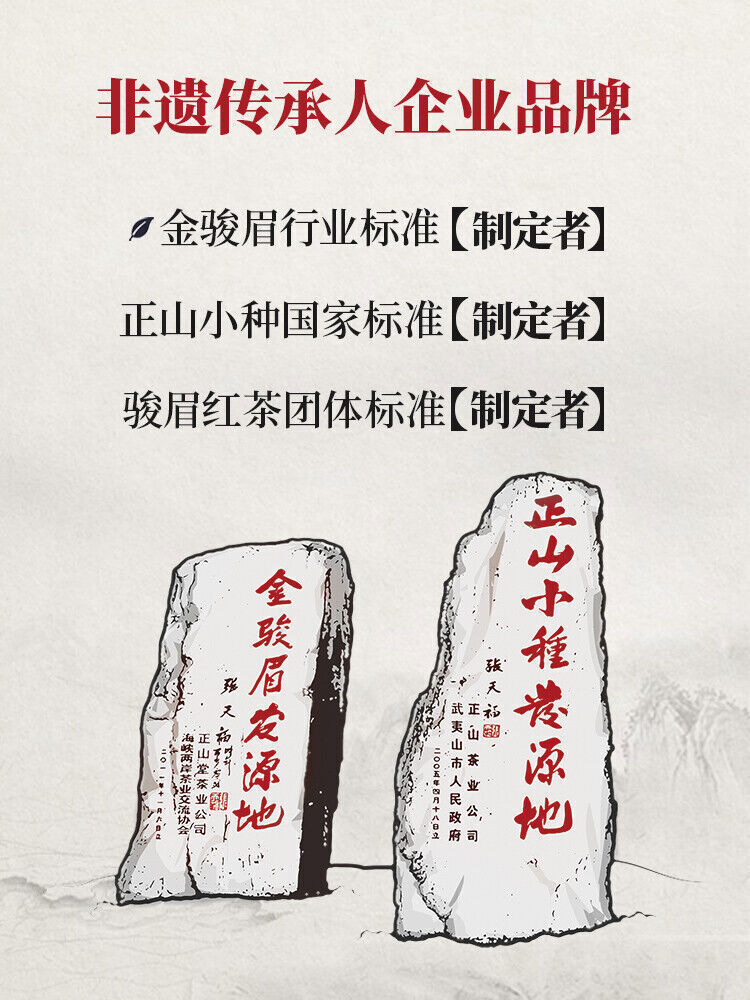 非遗传承人企业品牌
金骏眉行业标准【制定者】
正山小种国家标准【制定者】
骏眉红茶团体标准【制定者】
金骏眉发源地
张天福
正山堂茶业公司
海峡两岸茶业交流协会
二〇一一年十一月六日立
正山小種发源地
张天福
正山茶业公司
武夷山市人民政府
二〇〇五年四月十八日立